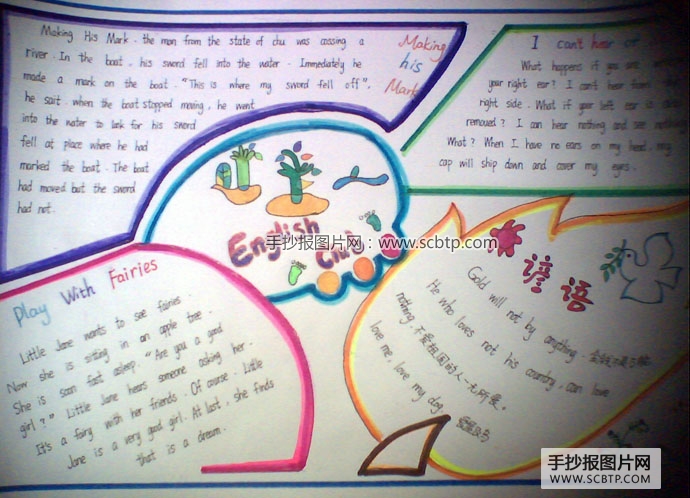 Making His Mark . the man from the state of chu was crossing a
river . In the boat , his sword fell into the water . Immediately he
made a mark on the boat . "This is where my sword fell off",
he sait . when the boat stopped moving , he went
into the water to look for his sword
fell at place where he had
marked the boat . The boat
had moved but the sword
had not .
Making
his
Mark
I can't hear or
What happens if you are
your right ear ? I can't hear from
right side . What if your left ear is also
removed ? I can hear nothing and see nothing
What ? When I have no ears on my head , my
cap will ship down and cover my eyes .
English
Club
手抄报图片网：www.scbtp.com
Play With Fairies
Little Jane wants to see fairies .
Now she is sitting in an apple tree .
She is soon fast asleep . "Are you a good
girl ? " Little Jane hears someone asking her .
It's a fairy with her friends . Of course . Little
Jane is a very good girl . At last , she finds
that is a dream .
谚语
Gold will not by anything . 金钱不是万能
He who loves not his country , can love
nothing . 不爱祖国的人一无所爱。
love me , love my dog . 爱屋及乌
手抄报图片网
WWW.SCBTP.COM